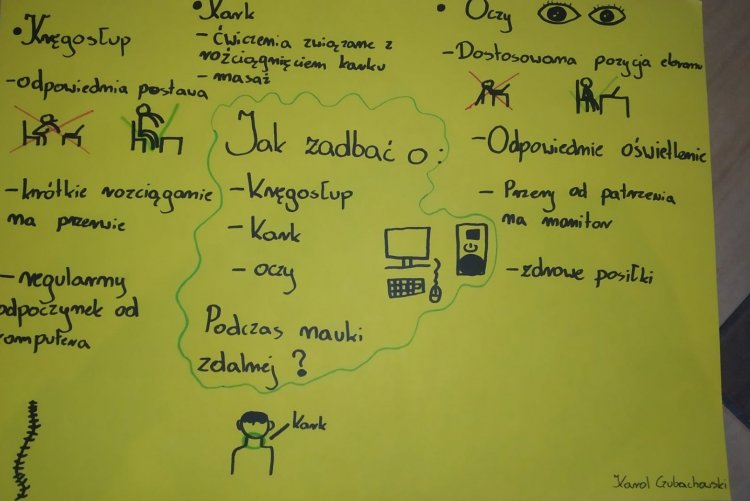 • Kręgosłup
-odpowiednia postawa
-krótkie rozciąganie
na przerwie
-regularny
odpoczynek od
komputera
• Kark
- ćwiczenia związane z
rozciągnięciem karku
- masaż
• Oczy
-Dostosowana pozycja ekranu
-Odpowiednie oświetlenie
- Przerwy od patrzenia
na monitor
-zdrowe posiłki
Jak zadbać o:
-Kręgosłup
- Kark
- oczy
Podczas nauki
zdalnej?
Kark
Karol Gubachowski